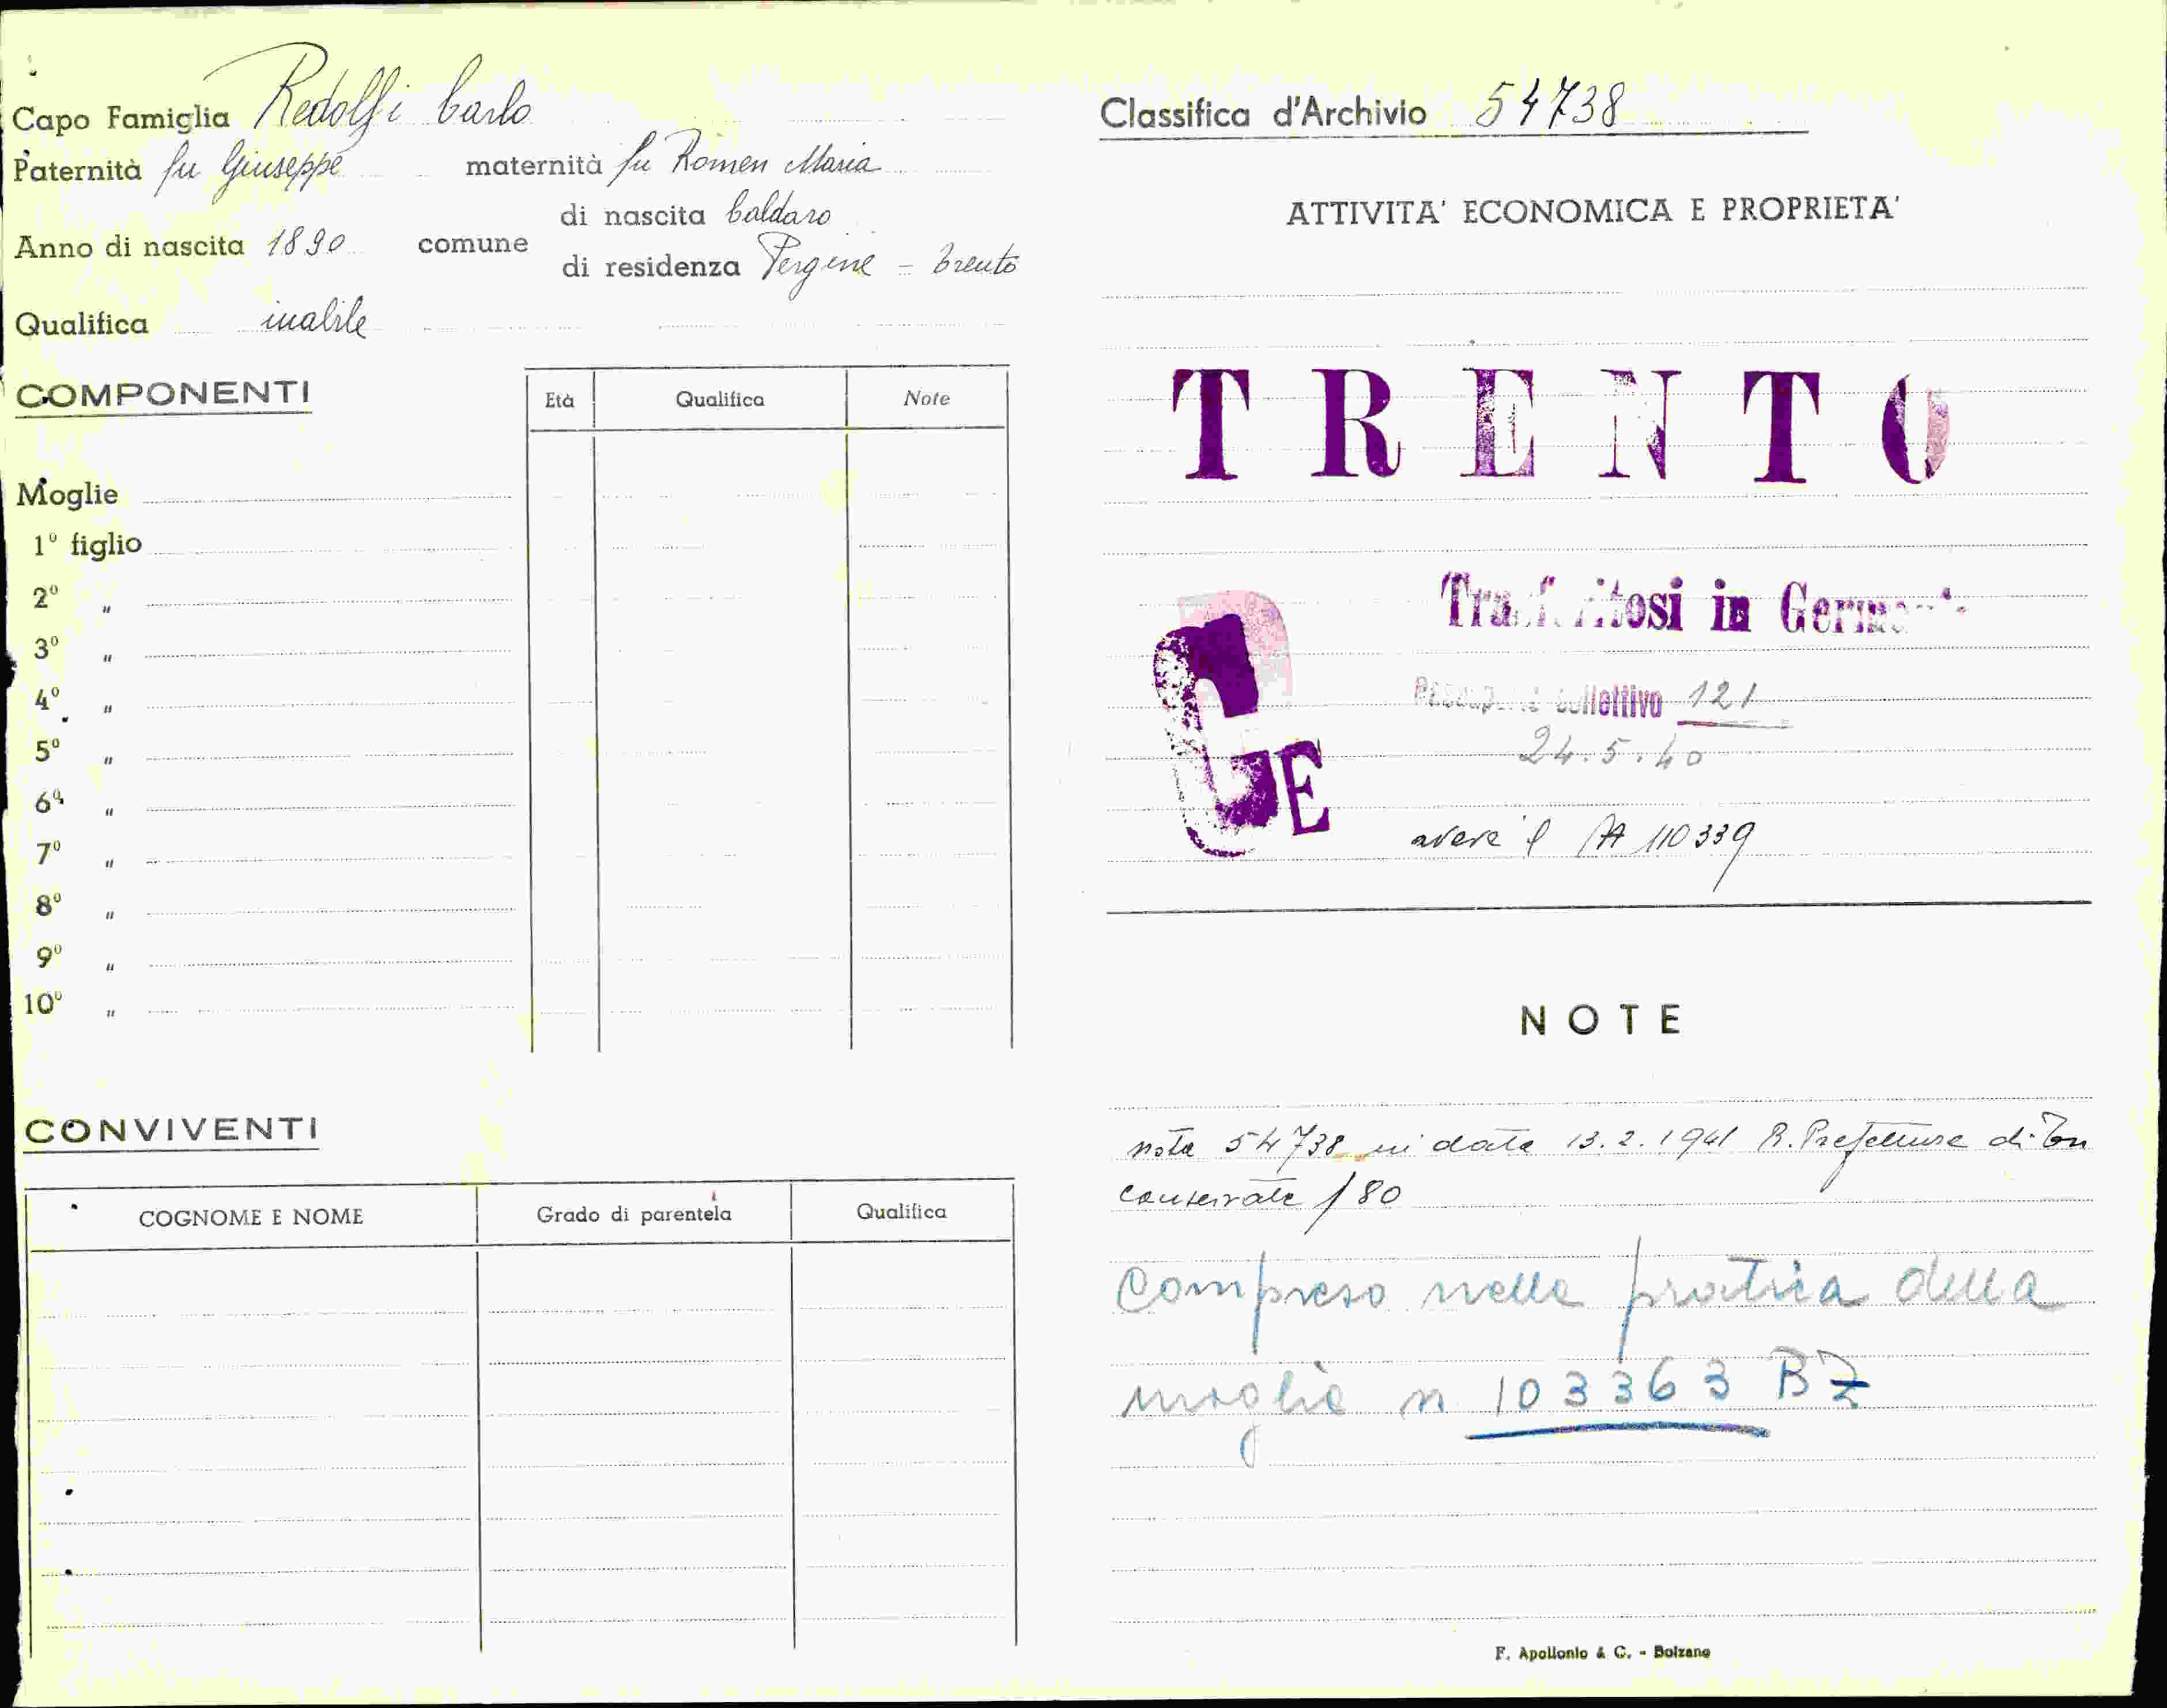 Capo Famiglia Redolfi Carlo
Paternità fu Giuseppe maternità fu Romen Maria
Anno di nascita 1890 comune
di nascita Caldaro
di residenza Pergine - Trento
Qualifica inabile
COMPONENTI
Età Qualifica Note
Moglie
1º figlio
2º "
3º "
4º "
5º "
6º "
7º "
8º "
9º "
10º "
CONVIVENTI
COGNOME E NOME Grado di parentela Qualifica
Classifica d'Archivio 54738
ATTIVITA' ECONOMICA E PROPRIETA'
TRENTO
in
collettivo 121
24.5.40
GE
A 110339
NOTE
nota 54738 in data 13.2.1941 R. Prefettura di Tn
conservate / 80
Compreso nella pratica della
moglie n 103363 BZ
F. Apollonio & C. - Bolzano